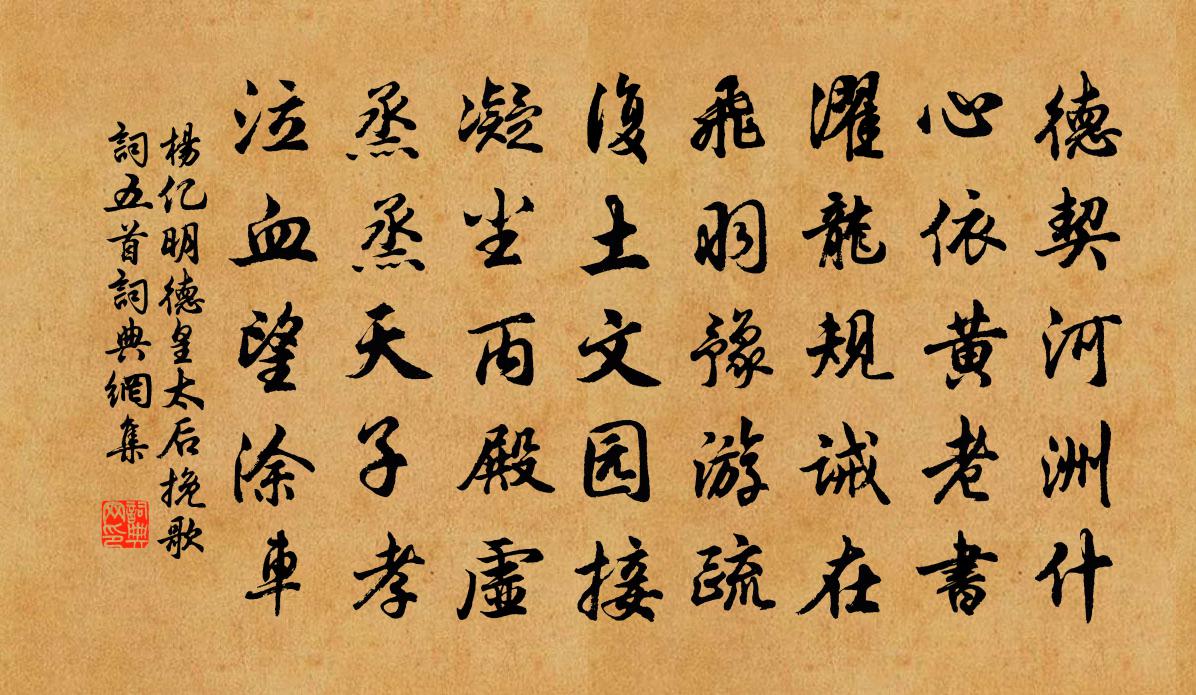 德契河洲什
心依黄老書
濯龍規誠在
飛羽豫游疏
復土文园接
凝尘丙殿虛
烝烝天子孝
泣血望涂車
楊亿明德皇太后挽歌
詞五首詞典網集
詞典網印